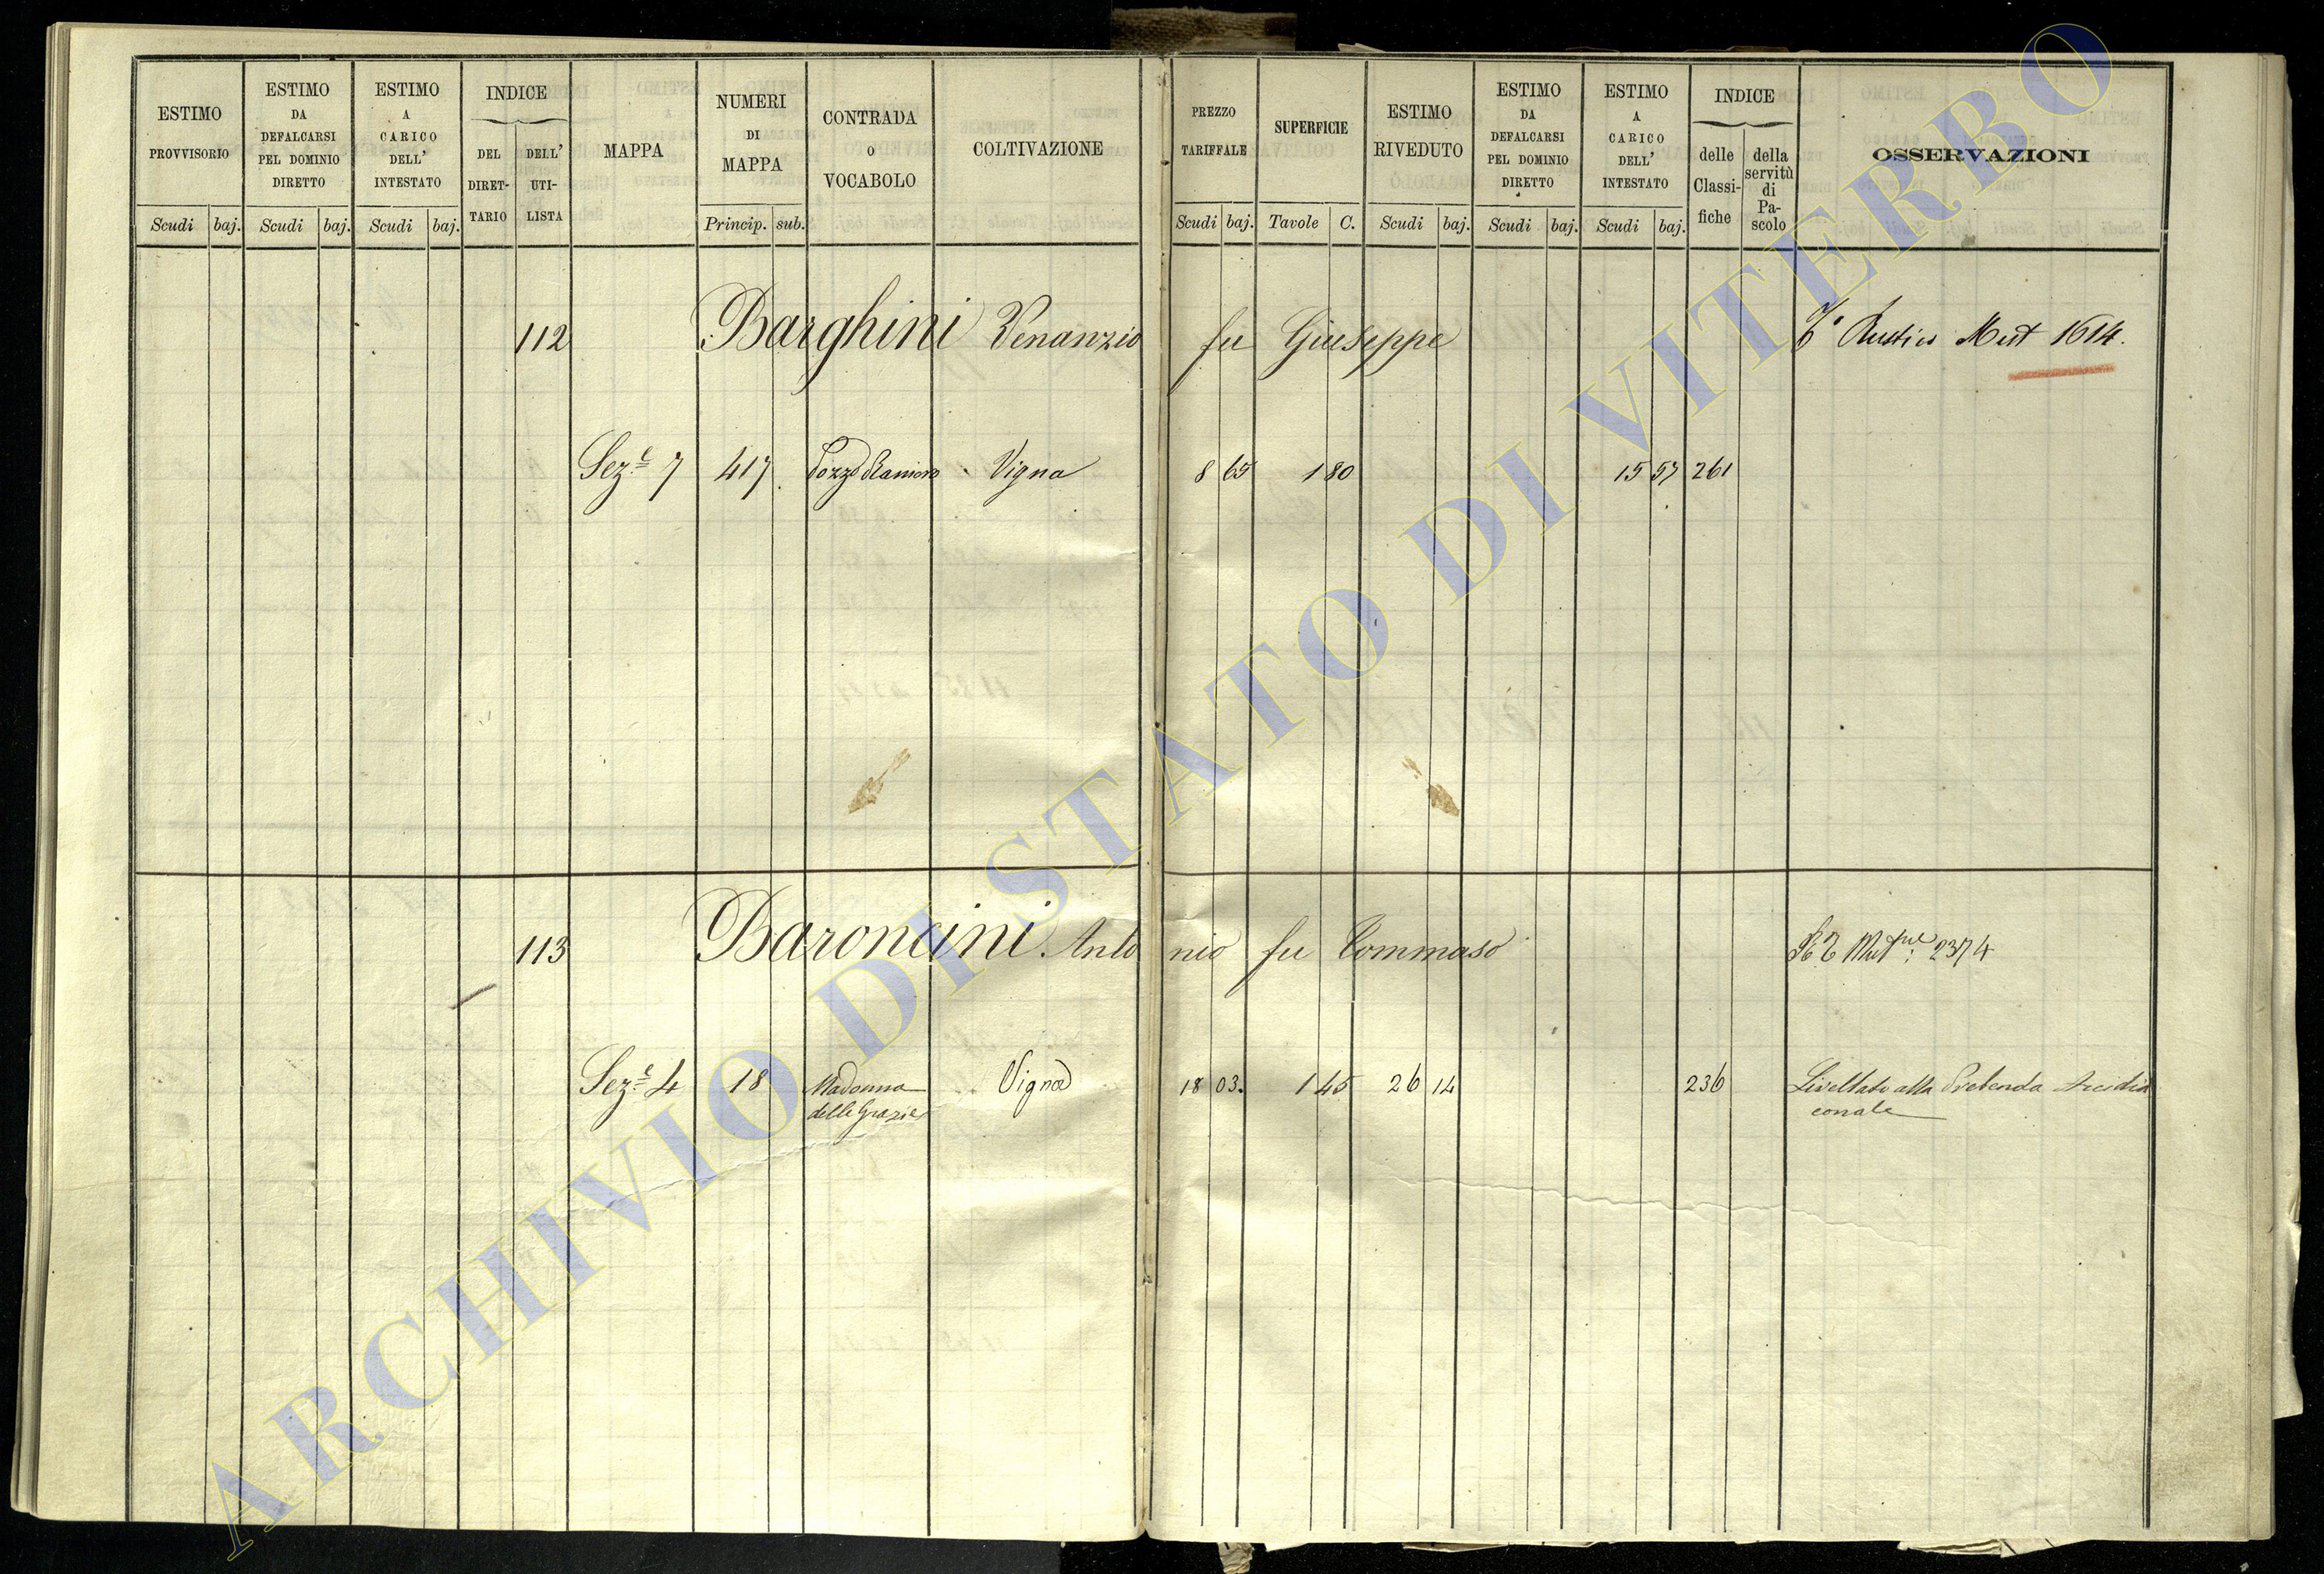 ESTIMO PROVVISORIO
ESTIMO DA DEFALCARSI PEL DOMINIO DIRETTO
ESTIMO A CARICO DELL' INTESTATO
INDICE
DEL DIRET-TARIO
DELL' UTI-LISTA
MAPPA
NUMERI DI MAPPA
CONTRADA O VOCABOLO
COLTIVAZIONE
PREZZO TARIFFALE
SUPERFICIE
ESTIMO RIVEDUTO
ESTIMO DA DEFALCARSI PEL DOMINIO DIRETTO
ESTIMO A CARICO DELL' INTESTATO
INDICE
delle Classi-fiche
della servitù di Pa-scolo
OSSERVAZIONI
Scudi baj. Scudi baj. Scudi baj. Princip. sub. Scudi baj. Tavole C. Scudi baj. Scudi baj. Scudi baj.
112 Barghini Venanzio fu Giuseppe Rustico 1614.
Sez.e 7 417 Pozzo Vigna 8 65 1 80 15 57 261
113 Baroncini Antonio fu Tommaso 2374
Sez.e 4 18 Madonna Vigna 18 03. 1 45 26 14 236 Livellato alla Prebenda Arcidia
delle Grazie conale
ARCHIVIO DI STATO DI VITERBO